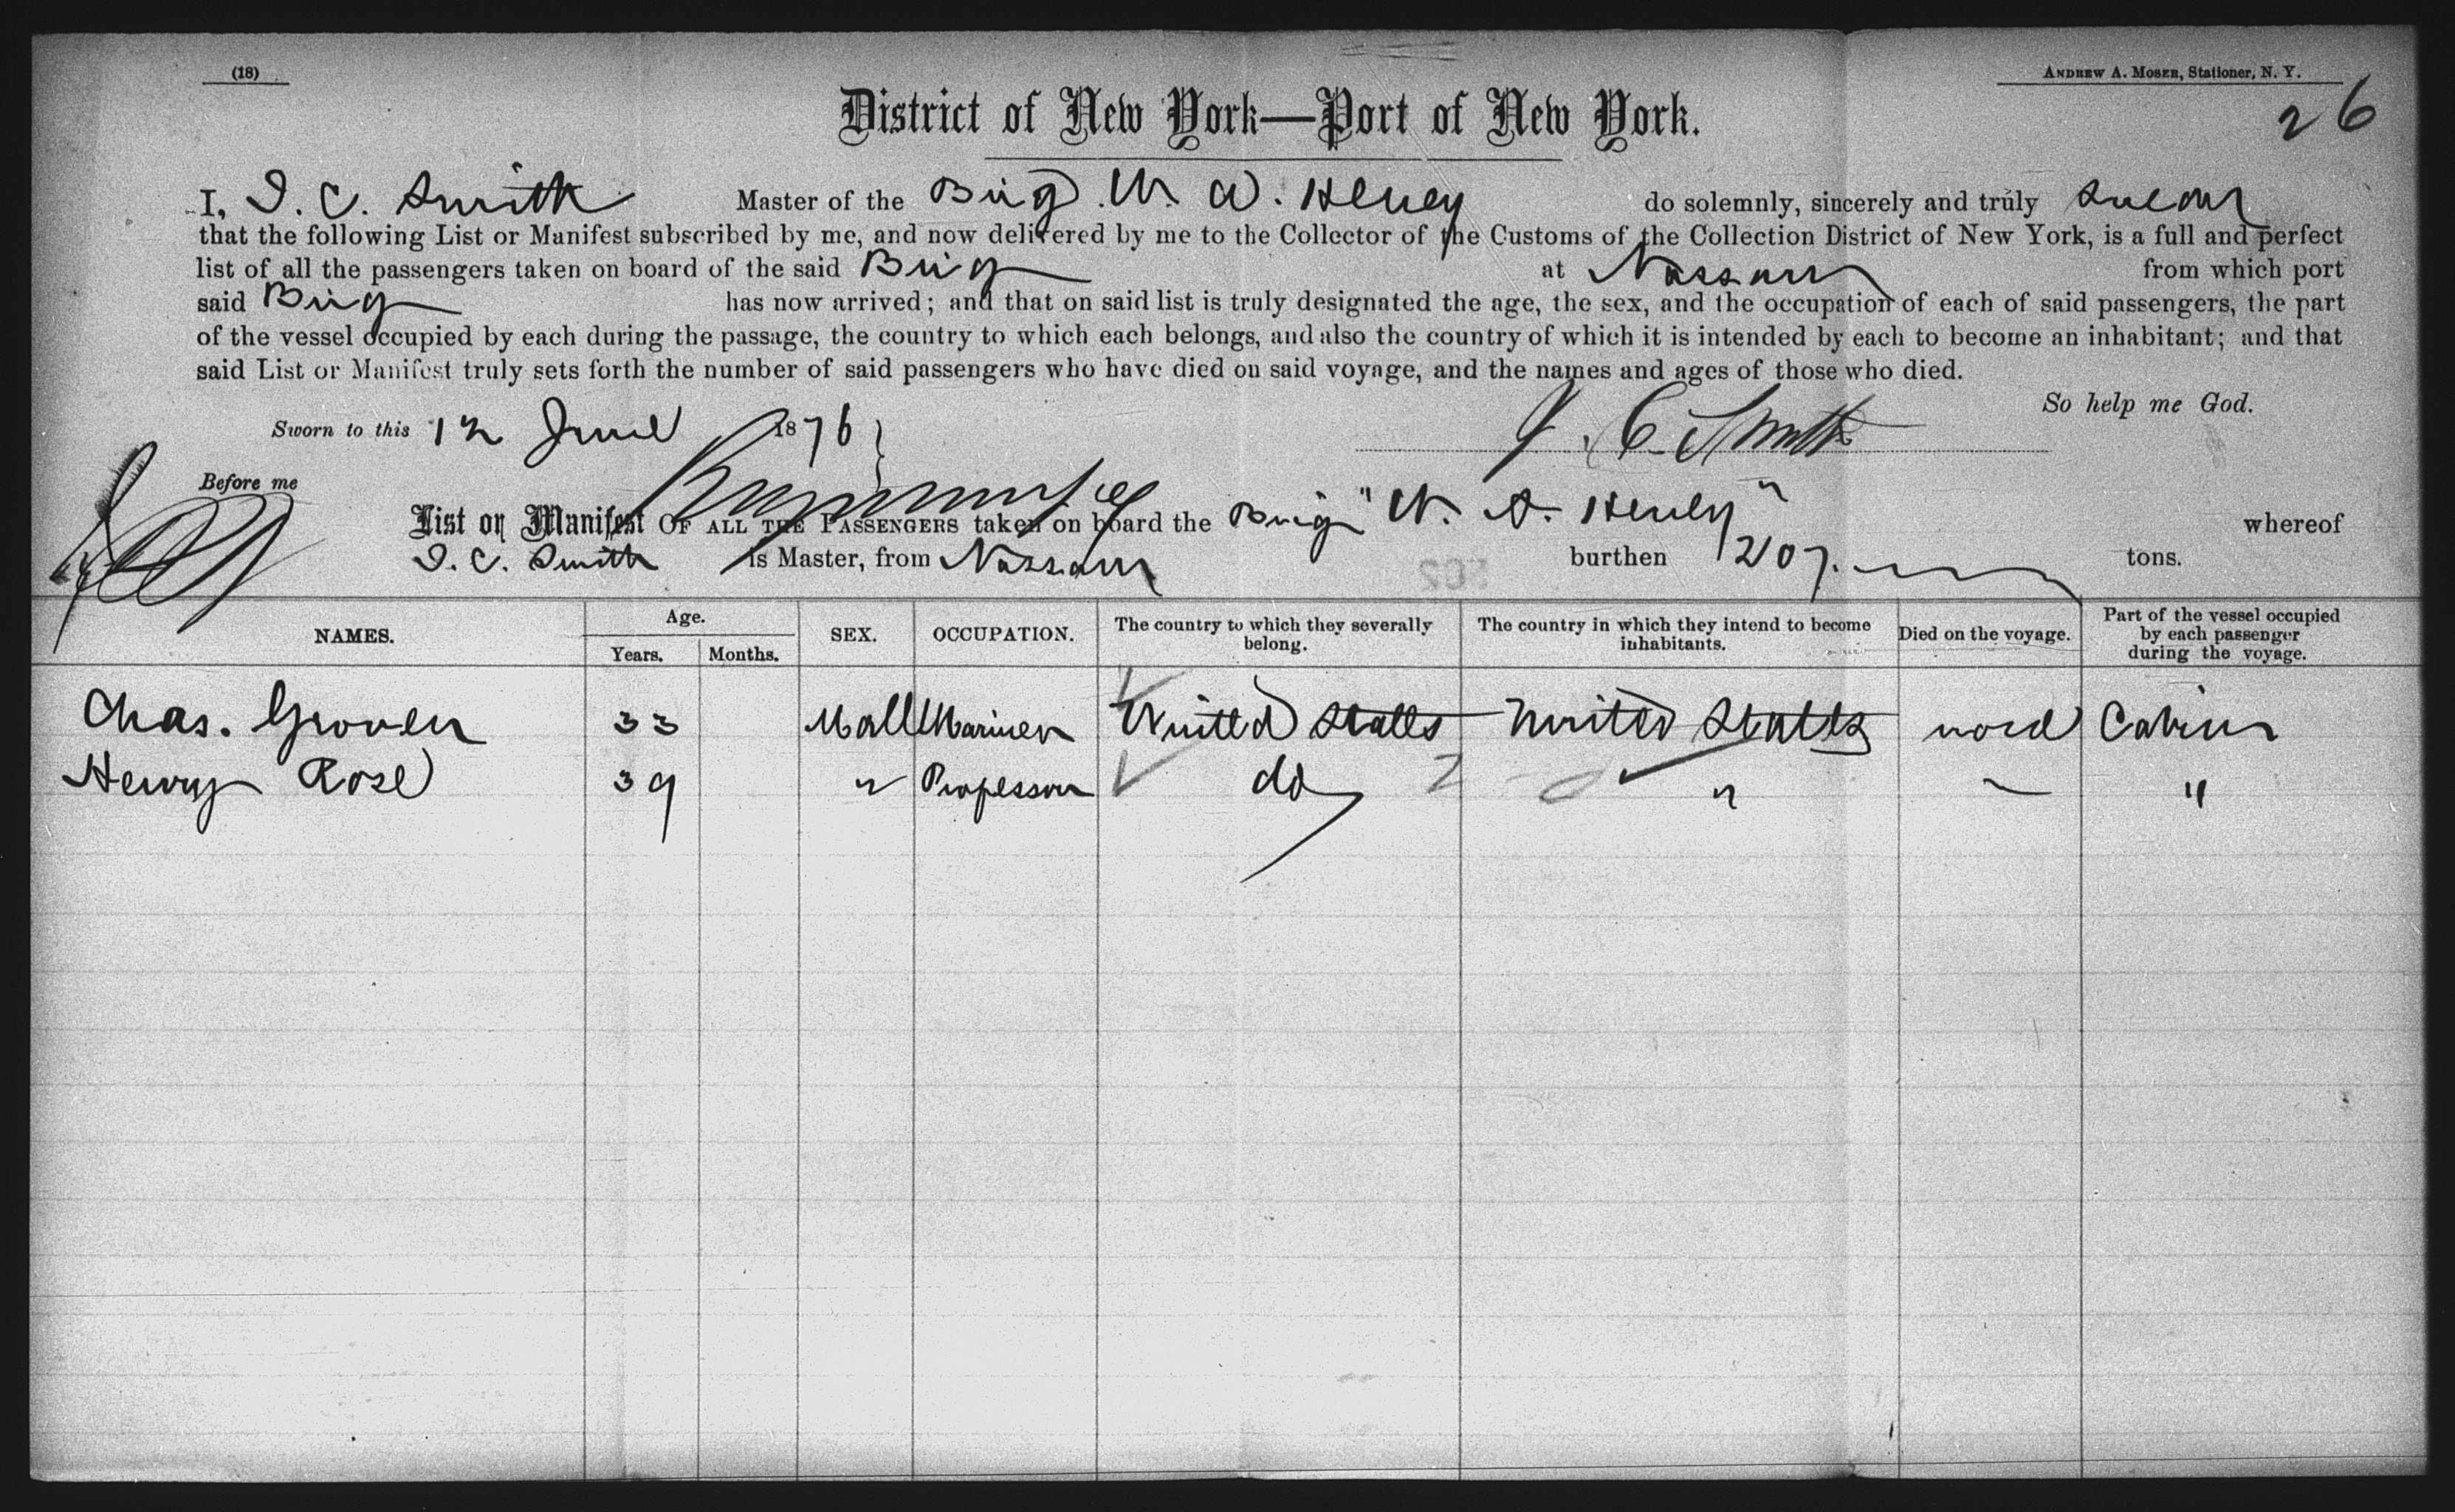 (18)
ANDREW A. MOSER, Stationer, N. Y.
26
District of New York—Port of New York.
I, I. C. Smith Master of the Brig W. A. Henry do solemnly, sincerely and truly swear
that the following List or Manifest subscribed by me, and now delivered by me to the Collector of the Customs of the Collection District of New York, is a full and perfect
list of all the passengers taken on board of the said Brig at Nassau from which port
said Brig has now arrived; and that on said list is truly designated the age, the sex, and the occupation of each of said passengers, the part
of the vessel occupied by each during the passage, the country to which each belongs, and also the country of which it is intended by each to become an inhabitant; and that
said List or Manifest truly sets forth the number of said passengers who have died on said voyage, and the names and ages of those who died.
So help me God.
Sworn to this 12 June 1876
J. C. Smith
Before me
List or Manifest OF ALL THE PASSENGERS taken on board the Brig "W. A. Henry" whereof
I. C. Smith is Master, from Nassau burthen 207. tons.
NAMES. Age. Years. Months. SEX. OCCUPATION. The country to which they severally belong. The country in which they intend to become inhabitants. Died on the voyage. Part of the vessel occupied by each passenger during the voyage.
Chas. Grover 33 Male Mariner United States United States none Cabin
Henry Rose 39 " Professor do " "